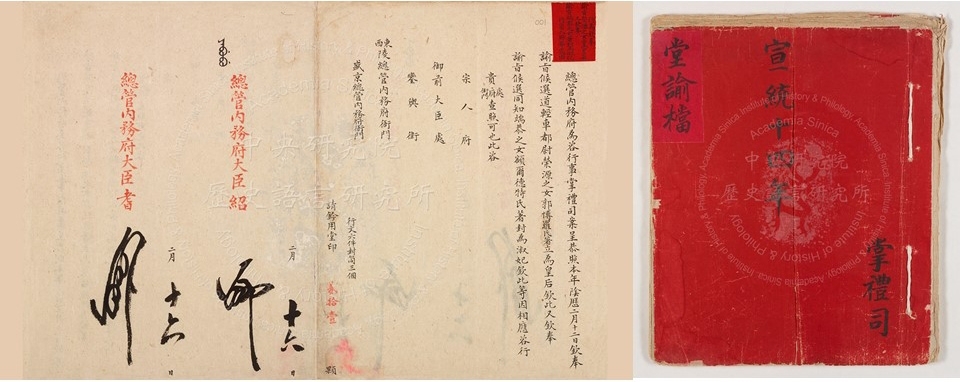 總管內務府為咨行事掌禮司案呈恭照本年陰曆二月十二日欽奉
諭旨候選道輕車都尉榮源之女郭博羅氏著立為皇后欽此又欽奉
諭旨候選同知端恭之女額爾德特氏著封為淑妃欽此等因相應咨行
貴處府衙門查照可也此咨
宗人府
御前大臣處
鑾輿衛
東西陵總管內務府衙門
盛京總管內務府衙門
行文六件封筒三個
請鈐用堂印 貳拾壹 顆
總管內務府大臣紹
二月十六日
總管內務府大臣耆
二月十六日
中央研究院
歷史語言研究所
掌禮司
宣統十四年
堂諭檔
Institute of History & Philology, Academia Sinica
中央研究院
歷史語言研究所